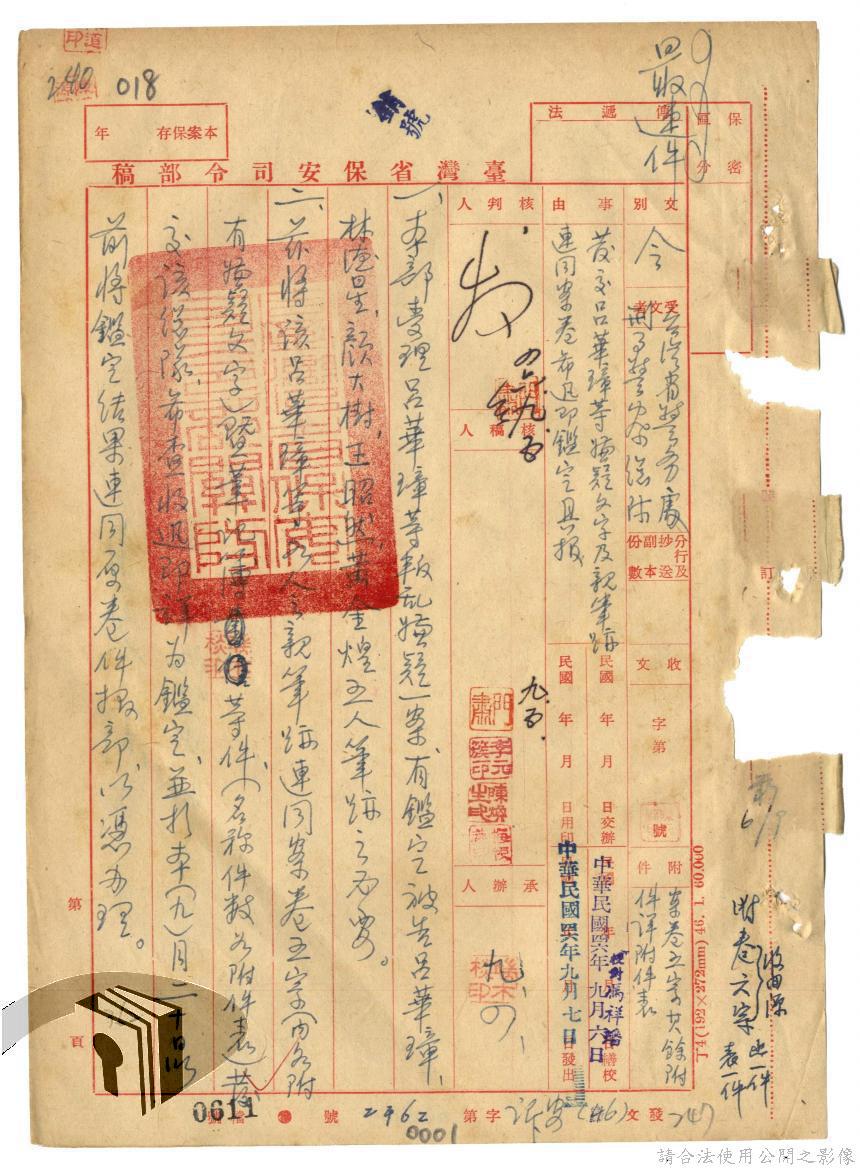 最速件
018
銷號
本案保存 年
保密區分
傳遞法
臺灣省保安司令部稿
文別 令
受文者 台灣省警務處刑事警察總隊
分行及抄送副本份數
事由 發交呂華璋等嫌疑文字及親筆跡連同案卷希迅即鑑定具報
核判人
核稿人
承辦人
九.五
九.四
收文 字第 號
附件 案卷五宗共餘附件詳附件表
民國 年 月 日交辦
民國 年 月 日用印
中華民國 年九月六日
中華民國 年九月七日
校對馮祥
日繕校
日發出
一、本部受理呂華璋等叛乱嫌疑一案，有鑑定被告呂華璋、
林德星、顏大樹、王昭然、黃金煌五人筆跡之必要。
二、茲將該呂華璋等五人之親筆跡連同案卷五宗（內各附
有嫌疑文字）暨筆記簿 等件（名称件數如附件表）發
交該總隊，希查收迅即詳為鑑定，並於本（九）月二十日以
前將鑑定結果連同原卷件撤部，以憑办理。
附卷六宗
表一件
訂
T4(192×272mm) 46. 1. 60,000
第 頁
發文(46) 安 字第 2962 號
747
0611
0001
請合法使用公開之影像